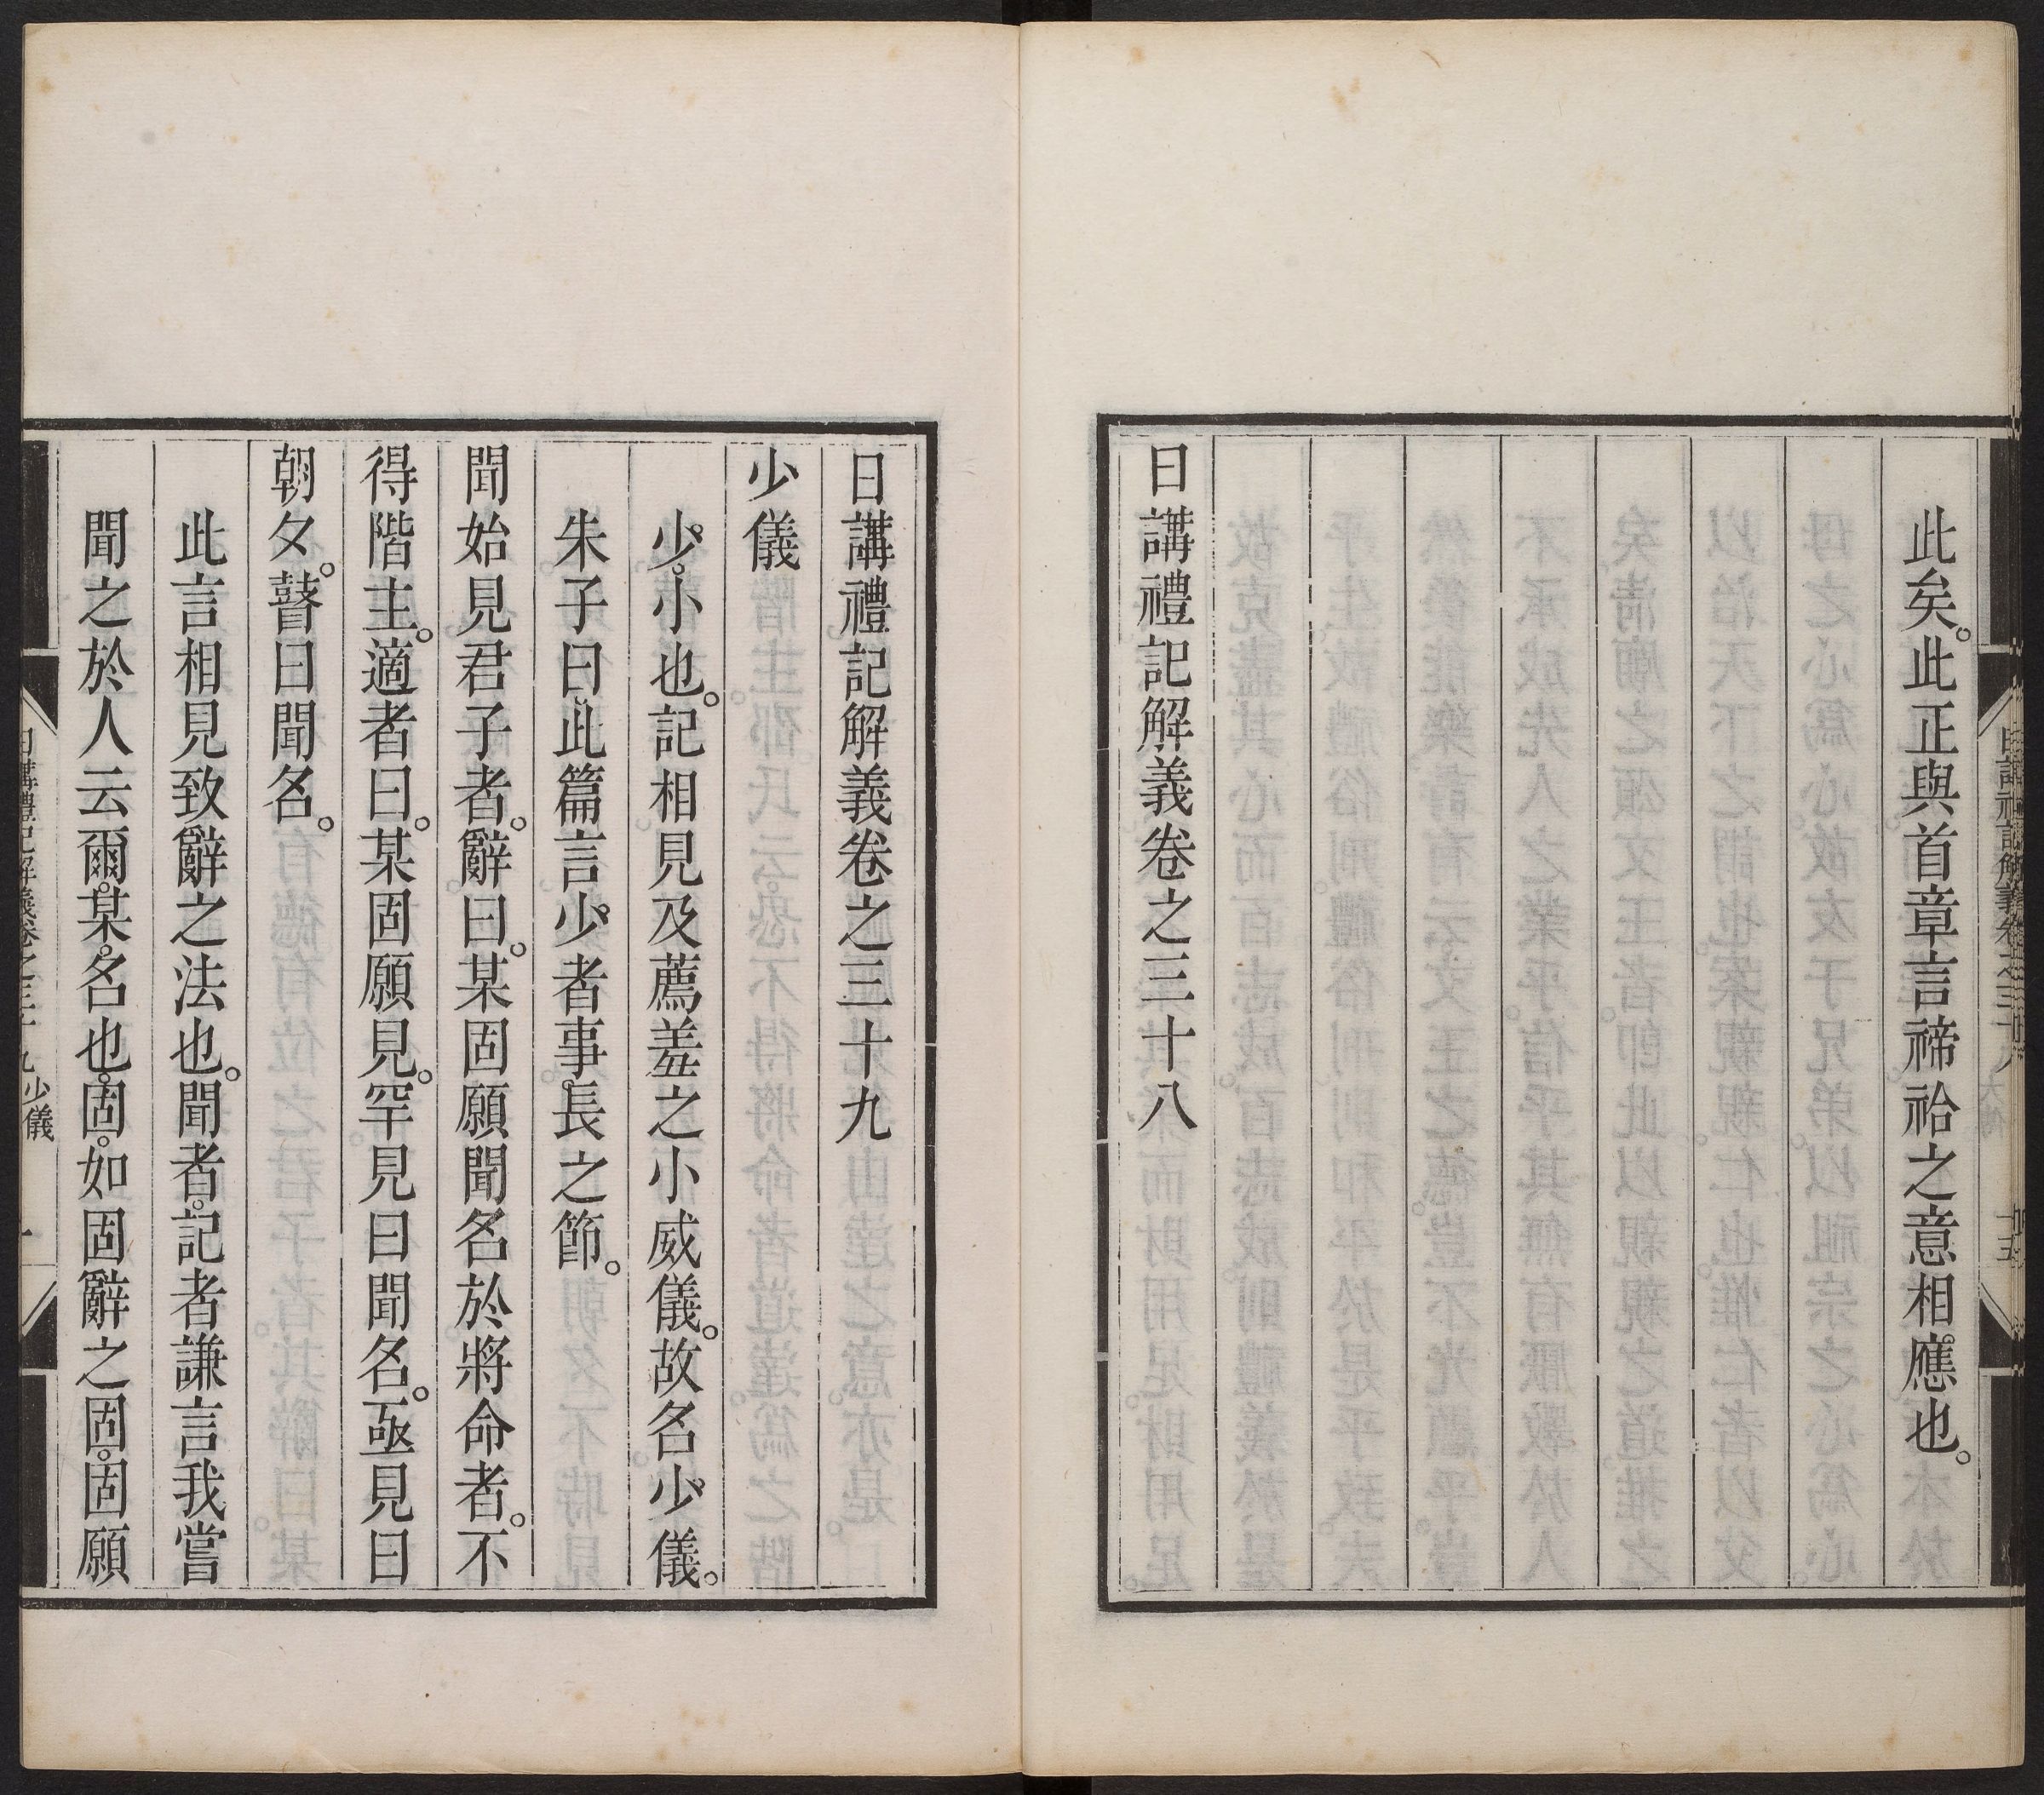 此矣。此正與首章言禘祫之意相應也。
日講禮記解義卷之三十八
日講禮記解義卷之三十九
少儀
少。小也。記相見及薦羞之小威儀。故名少儀。
朱子曰。此篇言少者事長之節。
聞始見君子者。辭曰。某固願聞名於將命者。不
得階主。適者曰。某固願見。罕見曰聞名。亟見曰
朝夕。瞽曰聞名。
此言相見致辭之法也。聞者。記者謙言我嘗
聞之於人云爾。某。名也。固。如固辭之固。固願
日講禮記解義卷之三十九 少儀 一